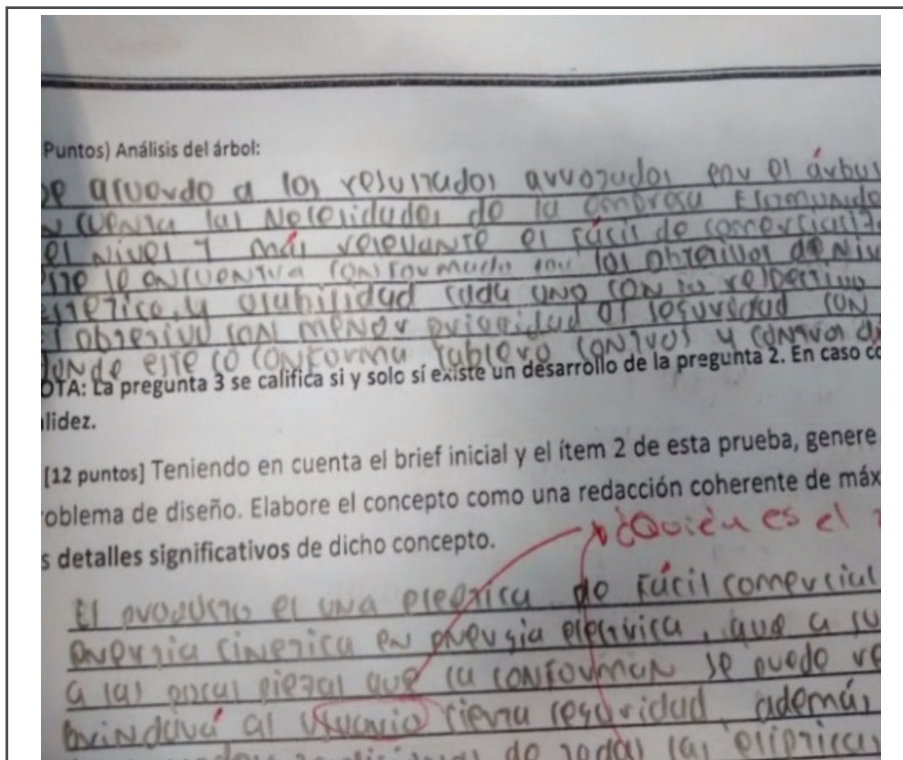 Puntos) Análisis del árbol:
De acuerdo a los resultados arrojados por el árbol
cuenta las Necesidades de la empresa
el nivel 1 más relevante el fácil de comercializ
este se encuentra conformado por los objetivos de Niv
estetica, y usabilidad cada uno con su respectivo
el objetivo con menor prioridad es seguridad con
donde este se conforma tablero conivos y conivos di
OTA: La pregunta 3 se califica si y solo sí existe un desarrollo de la pregunta 2. En caso co
lidez.
[12 puntos] Teniendo en cuenta el brief inicial y el ítem 2 de esta prueba, genere
roblema de diseño. Elabore el concepto como una redacción coherente de máx
s detalles significativos de dicho concepto.
¿Quién es el
El producto es una de Fácil comercial
energia cinetica en energia electrica, que a su
a las pocas piezas que la conforman se puede ve
brindara al Usuario cierta seguridad, además
de todas las elipticas